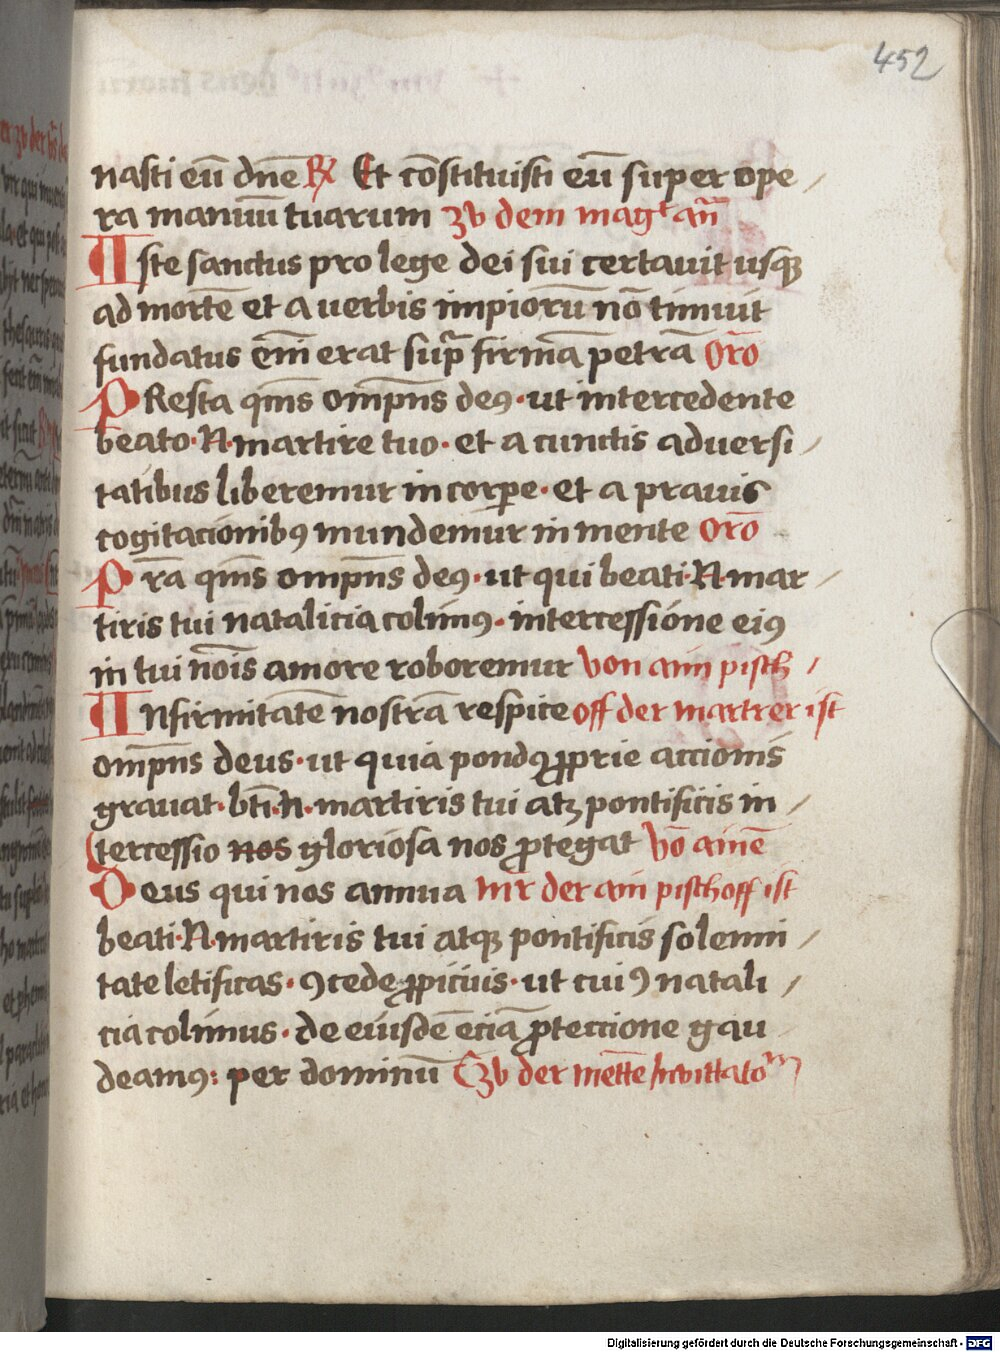 452
nasti eū dn̄e R℟ Et cōstituisti eū super ope /
ra manuū tuarum zv dem magᵗ an̄
Iste sanctus pro lege dei sui certauit usqꝫ
ad mortē et a uerbis impiorū nō timuit
fundatus em̄ erat sup̄ firmā petrā Oro̅
PResta qm̄s omp̄ns deꝰ · ut intercedente
beato · N · martire tuo · et a cunctis aduersi /
tatibus liberemur in corꝑe · et a prauis
cogitacionibꝰ mundemur in mente Oro̅
Pra̅ qm̄s omp̄ns deꝰ · ut qui beati · N · mar /
tiris tui natalicia colimꝰ · intercessione eiꝰ
in tui no̅is amore roboremur von aim pisch /
Infirmitatē nostrā respice off der martrer ist
omp̄ns deus · ut quia pondꝰ ꝓprie accionis
grauat · bt̄i · N · martiris tui atqꝫ pontificis in /
tercessio nos gloriosa nos ꝓtegat vō aimē
Deus qui nos annua mr der ain pischoff ist
beati · N · martiris tui atqꝫ pontificis solemni /
tate letificas · ꝯcede ꝓpicius · ut cuiꝰ natali /
cia colimus · de eiusdē eciā ꝓteccione gau
deamꝰ : per dominū Zv der mettē invittatoꝝ
Digitalisierung gefördert durch die Deutsche Forschungsgemeinschaft - DFG